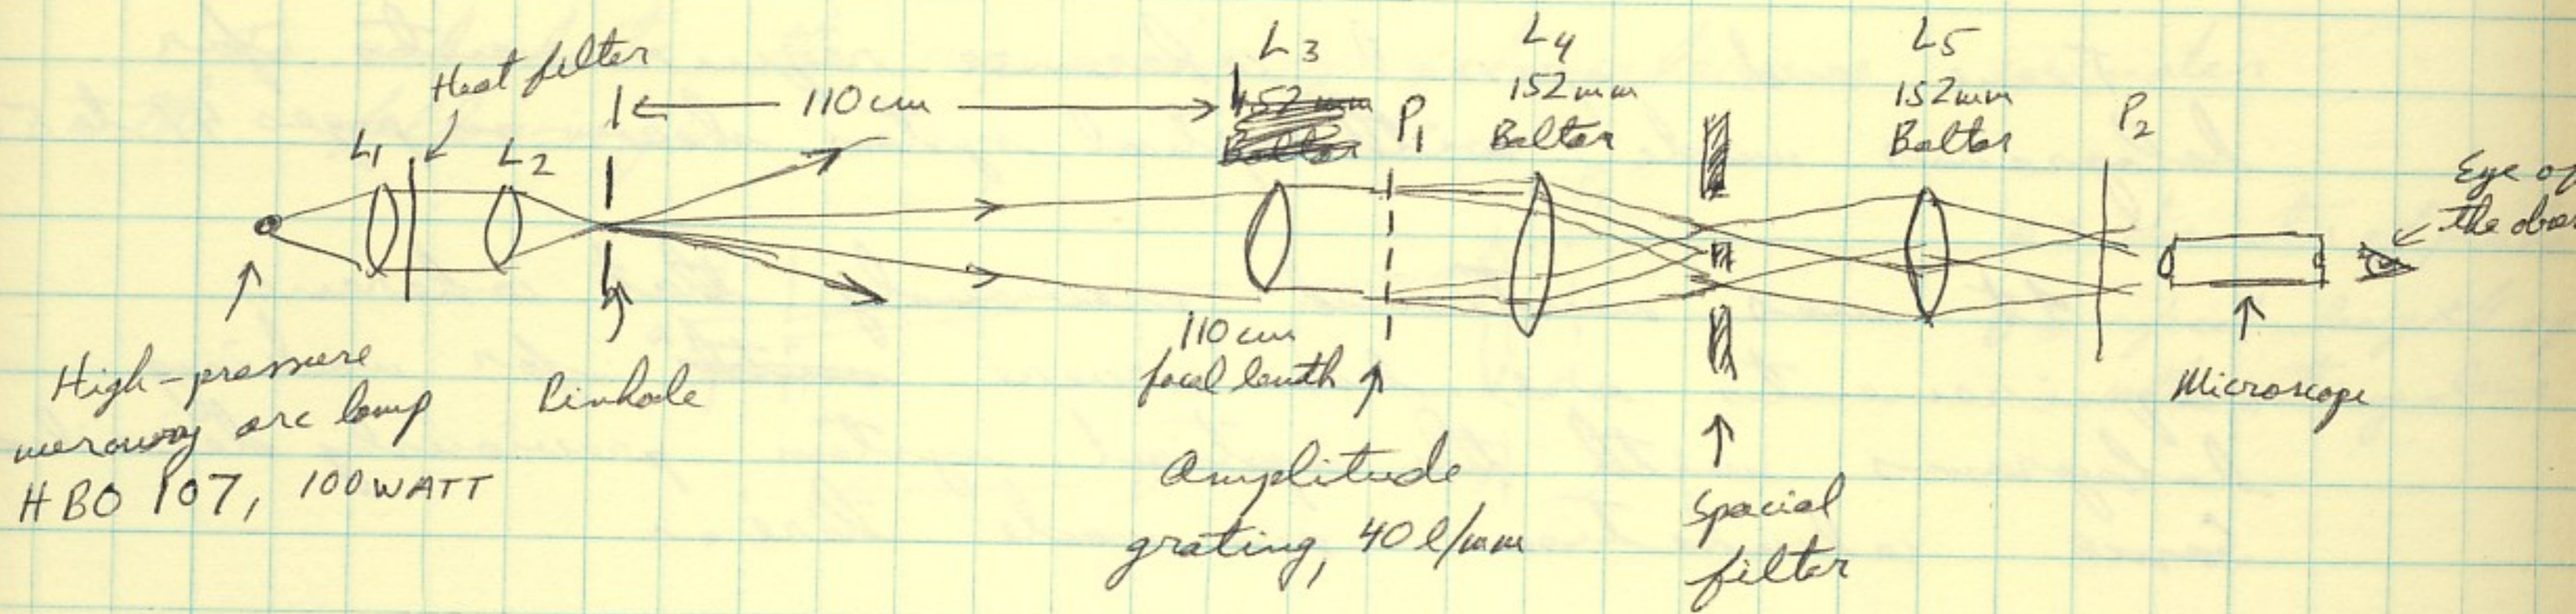 Heat filter
L1
L2
110 cm
L3
152 mm
Baltar
P1
L4
152 mm
Baltar
L5
152 mm
Baltar
P2
Eye of
the
High-pressure
mercury arc lamp
HBO 107, 100 WATT
Pinhole
110 cm
focal length
Amplitude
grating, 40 l/mm
Spacial
filter
Microscope